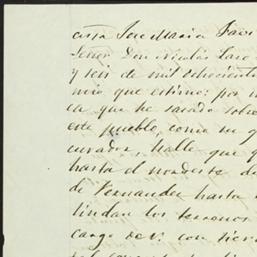 casa Jose Maria
Señor Don Nicolas Laro
y seis de mil ochociento
mio que estimo: por
ca que he sacado sobre
este pueblo, como
curador, halle que
hasta el nordeste de
de Fernandez hasta
lindan los terrenos
cargo de V. con tier